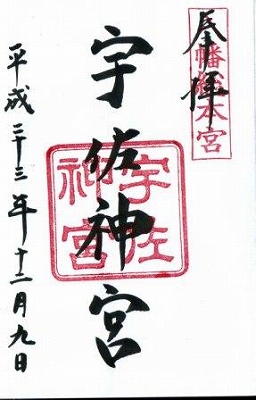 奉拝
八幡総本宮
宇佐神宮
宇佐
神宮
平成二十三年十二月九日